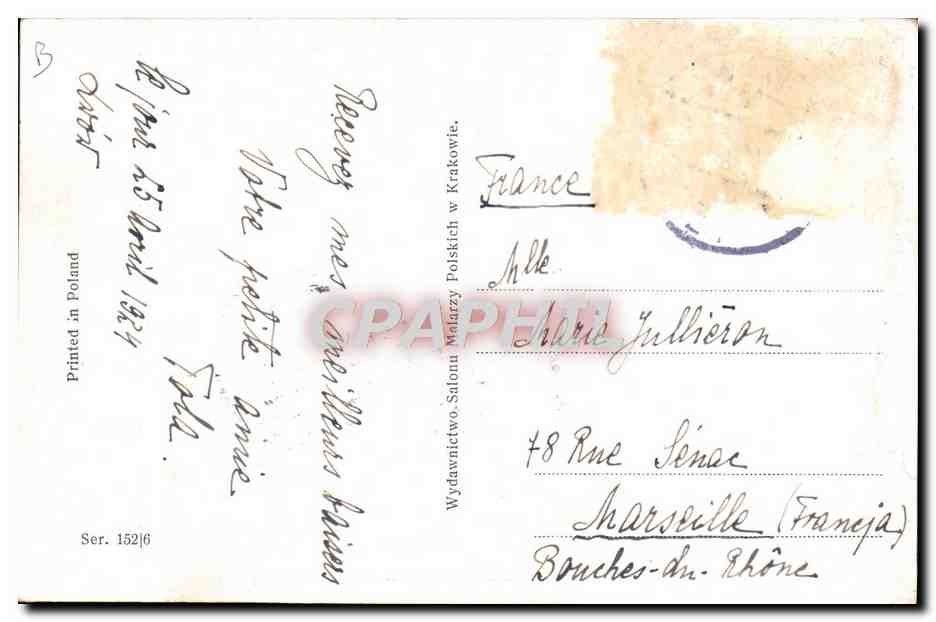 B
Lwów
le jour 25 Avril 1924
Recevez mes meilleurs baisers
Votre petite amie
Tola.
Printed in Poland
Ser. 152|6
Wydawnictwo Salonu Malarzy Polskich w Krakowie.
CPAPHIL
France
Mlle
Marie Jullièron
78 Rue Sénac
Marseille (Francja)
Bouches-du-Rhône